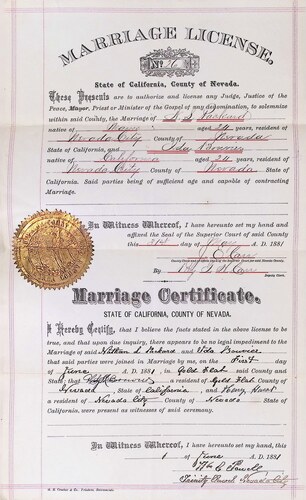 MARRIAGE LICENSE,
No
State of California, County of Nevada.
These Presents are to authorize and license any Judge, Justice of the
Peace, Mayor, Priest or Minister of the Gospel of any denomination, to solemnize
within said County, the Marriage of N. L. Packard
native of Maine aged 24 years, resident of
Nevada City County of Nevada
State of California, and Ida Bonner
native of California aged 24 years, resident of
Nevada City County of Nevada, State of
California. Said parties being of sufficient age and capable of contracting
Marriage.
In Witness Whereof, I have hereunto set my hand and
affixed the Seal of the Superior Court of said County
this 31st day of May A. D. 1881
By
Marriage Certificate.
STATE OF CALIFORNIA, COUNTY OF NEVADA.
I Hereby Certify, that I believe the facts stated in the above license to be
true, and that upon due inquiry, there appears to be no legal impediment to the
Marriage of said Packard and Ida Bonner
that said parties were joined in Marriage by me, on the First day of
June A. D. 1881, in Gold Flat said County and
State; that Bonner a resident of Gold Flat County of
Nevada State of California, and Hunt
a resident of Nevada City County of Nevada, State of
California, were present as witnesses of said ceremony.
In Witness Whereof, I have hereunto set my hand, this
1 June A. D. 1881
Wm C Powell
Trinity Church Nevada City